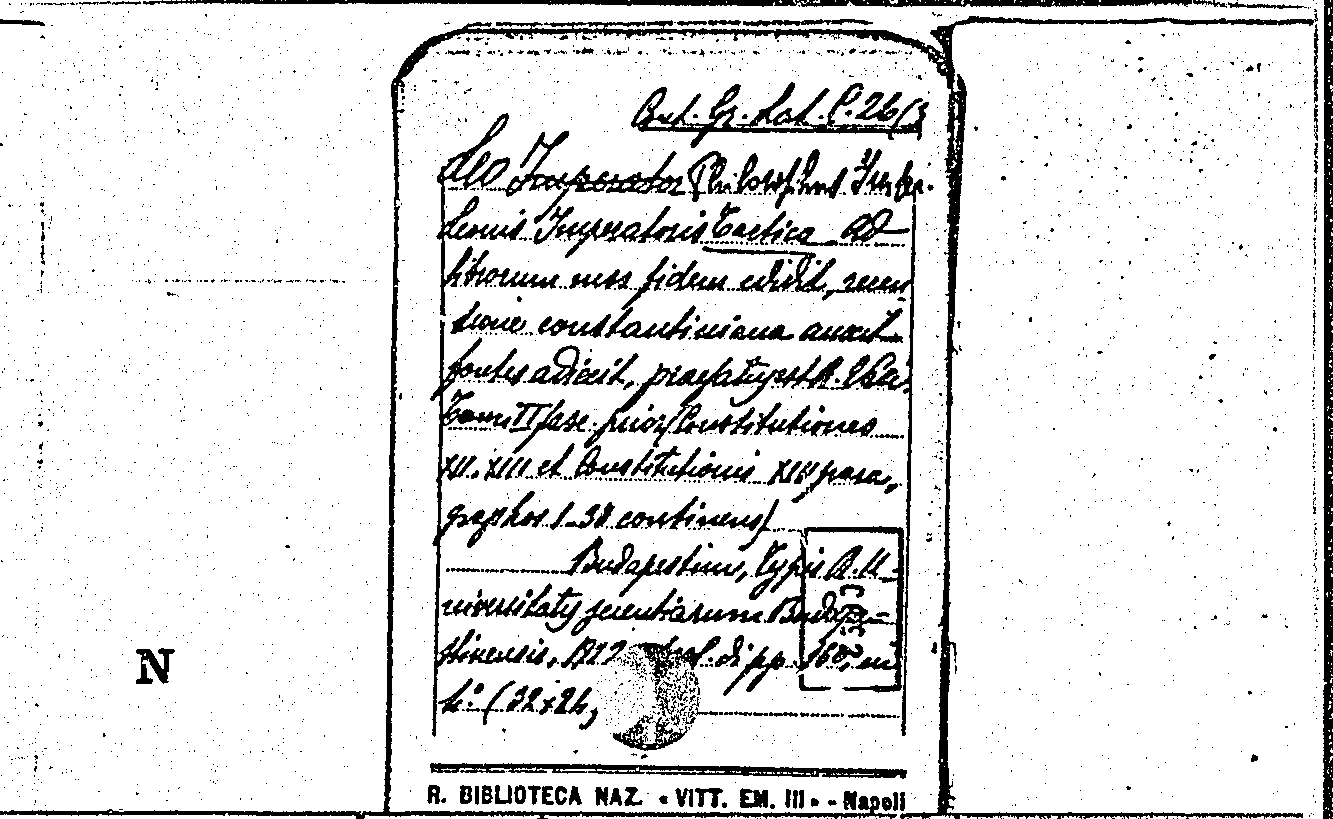 Aut. Gr. Lat. C. 26(3
Leo Imperator Philosophus
Leonis Imperatoris Tactica ad
librorum mss fidem edidit, recen
sione constantiniana auxit
fontes adiecit, praefatus est R. Vári.
Tomi II fasc. prior (Constitutiones
XII. XIII et Constitutionis XIV para,
graphos 1-38 continens)
Budapestini, Typis R. U-
niversitatis scientiarum Budape=
stinensis, di pp. 160, in
4.° (32×24,
N
R. BIBLIOTECA NAZ. «VITT. EM. III» - Napoli